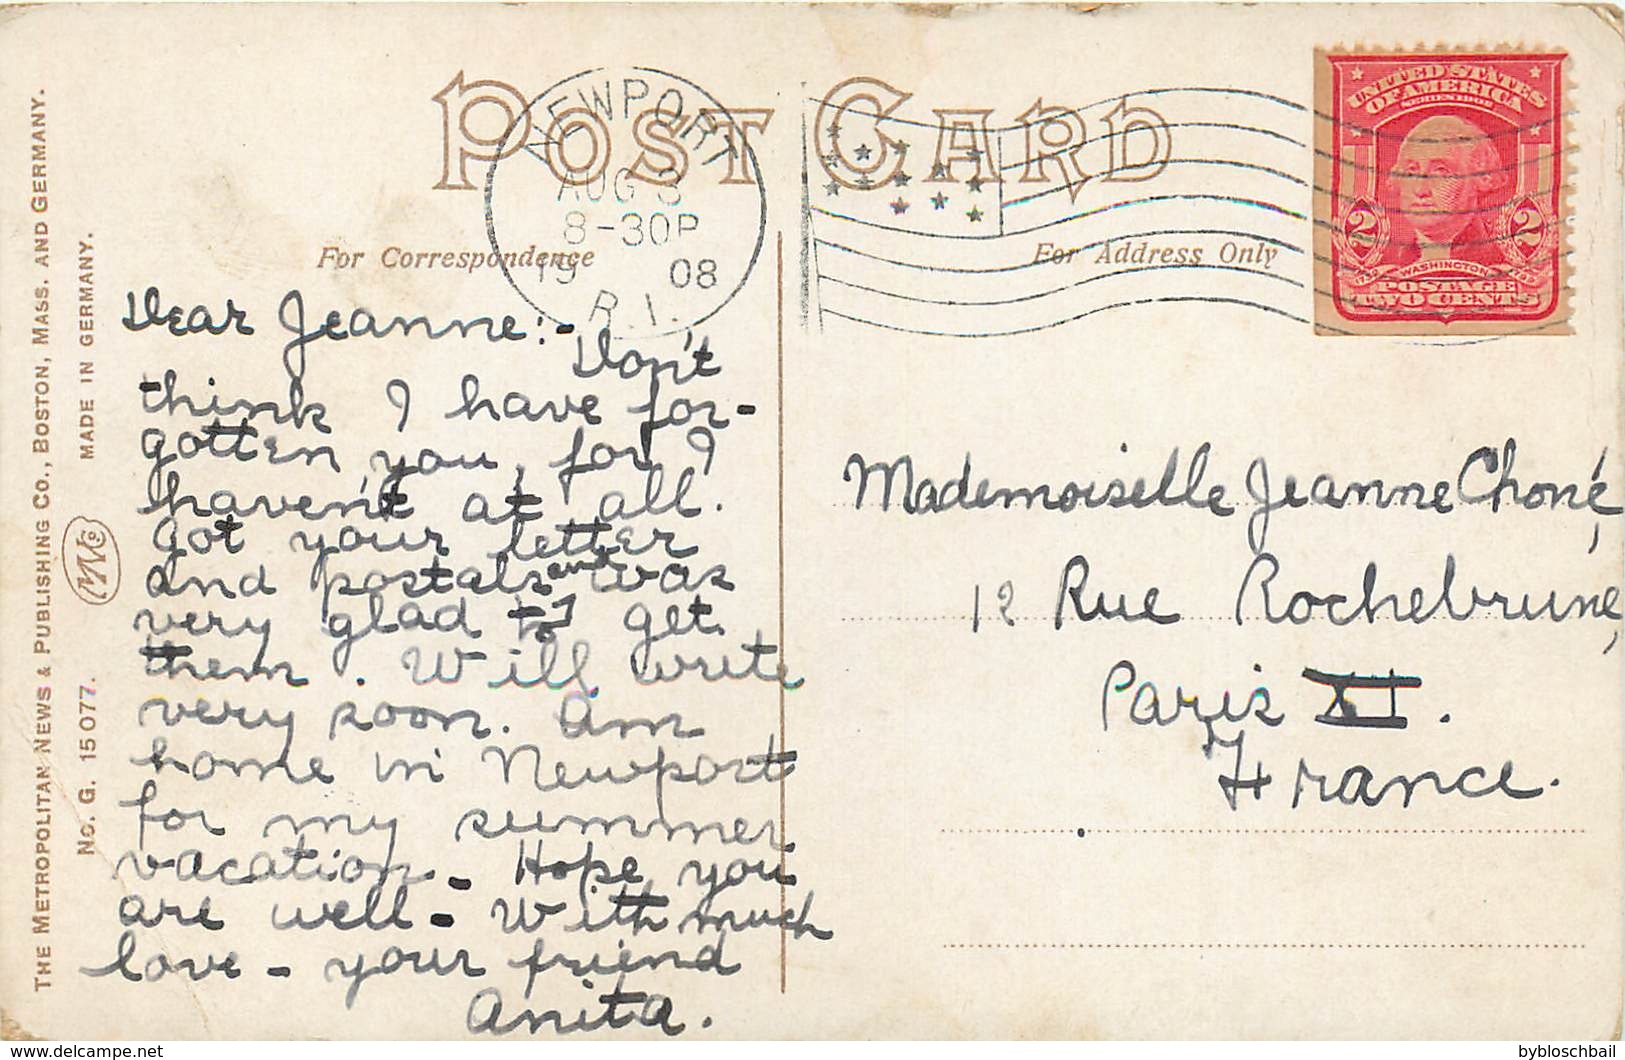 POST CARD
NEWPORT
AUG 3
8-30P
19 08
R.I.
For Correspondence
For Address Only
UNITED STATES
OF AMERICA
SERIES 1902
2 2
1732 WASHINGTON 1799
POSTAGE
TWO CENTS
THE METROPOLITAN NEWS & PUBLISHING CO., BOSTON, MASS. AND GERMANY.
No. G. 15077.
MADE IN GERMANY.
Dear Jeanne:-
Don't
think I have for-
gotten you, for I
haven't at all.
Got your letter
and postals and was
very glad to get
them. Will write
very soon. Am
home in Newport
for my summer
vacation - Hope you
are well - With much
love - your friend
Anita.
Mademoiselle Jeanne Choné,
12 Rue Rochebrune,
Paris XI.
France.
bybloschbail